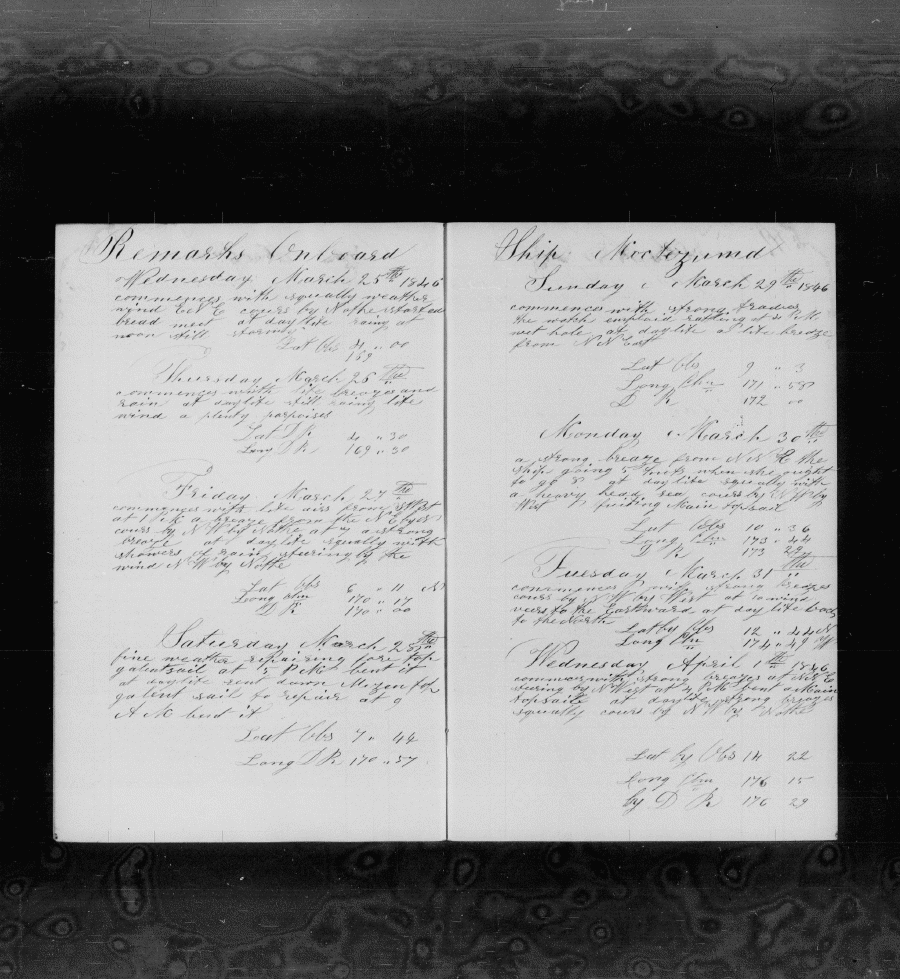 Remarks Onboard
Wednesday March 25th 1846
commences with squally weather
wind ENE cours by Nothe started
bread meet at daylite rainy at
noon still stormy
Lat Obs 4 " 00
169
Thursday March 26 th
commences with lite breazes and
rain at daylite still rainy lite
wind a plenty porpoises
Lat D R 4 " 30
Long D R 169 " 30
Friday March 27 th
commences with lite airs from
at P M a breaze from the N E by N
cours by N W by Nothe at a strong
breaze at daylite squally with
showers of rain steering by the
wind N W by Nothe
Lat Obs 6 " 11 N
Long Chm 170 " 17
D R 170 " 00
Saturday March 28th
fine weather repairing fore top
galentsail at 5 P M bent it
at daylite sent down Mizon top
galent sail to repair at 9
A M bent it
Lat Obs 7 " 44
Long D R 170 " 57
Ship Moctezuma
Sunday March 29th 1846
commences with strong trades
the watch emploid ratling at 4 P M
wet hole at daylite a lite breaze
from N N East
Lat Obs 9 " 3
Long Chm 171 " 58
D R 172 00
Monday March 30th
a strong breaze from N N E the
ship going 5 knots when she ought
to go 8 at daylite squally with
a heavy head sea cours by N W by
West fitting Main topsail
Lat Obs 10 " 36
Long Chm 173 " 44
D R 173 29
Tuesday March 31 th
commences with strong breazes
cours by N W by West at 10 wind
veers to the Eastward at daylite back
to the North
Lat by Obs 12 " 44 N
Long Chm 174 " 49 W
Wednesday April 1th 1846
commences with strong breazes at N N E
stering by N West at 4 P M bent a Main
topsaile at daylite strong breazes
squally cours by N W by Nothe
Lat by Obs 14 22
Long Chm 176 15
by D R 176 29